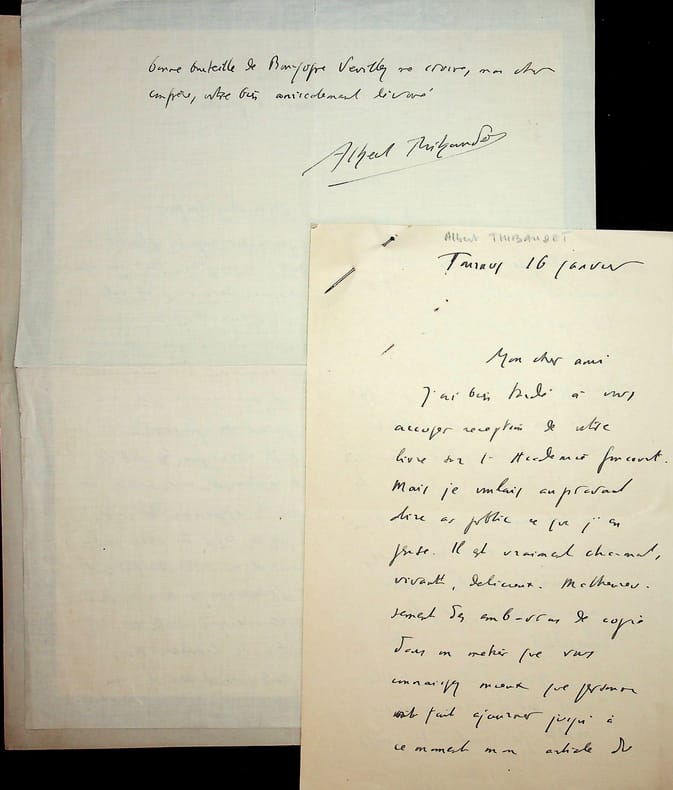 bonne bouteille de Bourgogne Veuillez me croire, mon cher
confrère, votre bien amicalement dévoué
Albert Thibaudet
Albert THIBAUDET
Tournus 16 janvier
Mon cher ami
J'ai bien tardé à vous
accuser reception de votre
livre sur l'Academie Goncourt.
Mais je voulais auparavant
dire au public ce que j'en
pense. Il est vraiment charmant,
vivant, delicieux. Malheureu-
sement des embarras de copie
dans un metier que vous
connaissez mieux que personne
ont fait ajourner jusqu'à
ce moment mon article de